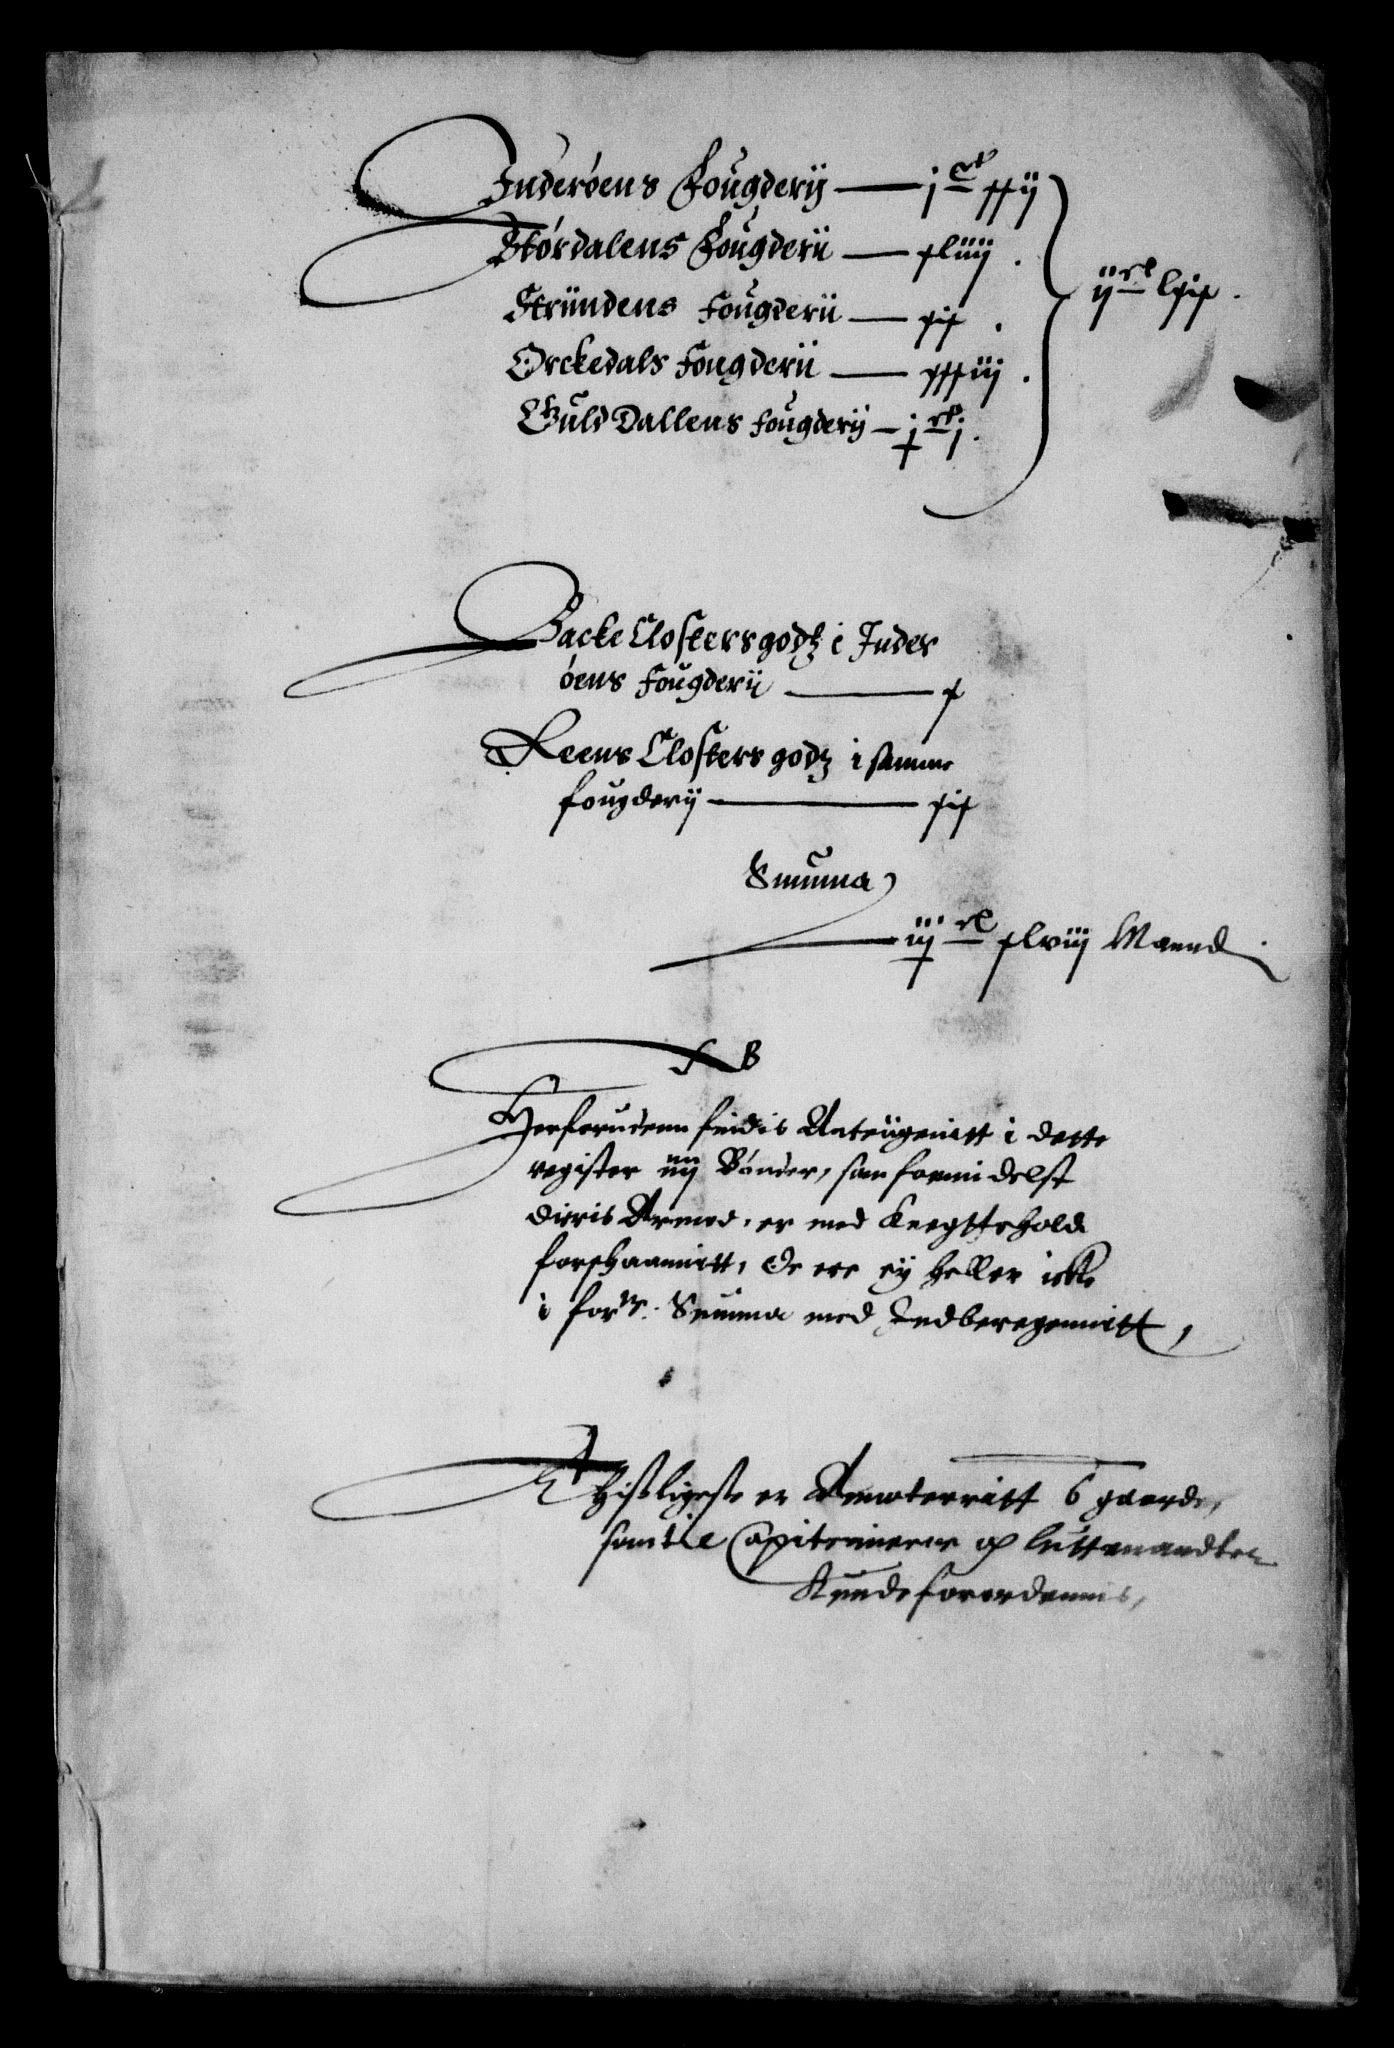 Inderøens Fougderij — j C xxij
Størdalens Fougderii — xliiij.
Strindens Fougderii — xix.
Orckedals Fougderii — xxxiij.
Guld Dallens fougderij — j C j.
ij C lxix.
Backe Closters godtz i Inder
øens Fougderij — x
Reens Closters godtz i samme
fougderij — xix
Summa
iij C xlviij Mannd
N B
Herforudenn findis Anteignitt i dette
register iiij Bønder, som formidelst
dieris Armod, er med Knegtthold
forschaannitt, De ere ey heller icke
i forne. Summa med Indberegennitt,
sligeste er Annoterritt 6 gaarde,
som til Capiteinerne och luttenandter
Kunde forordennis,